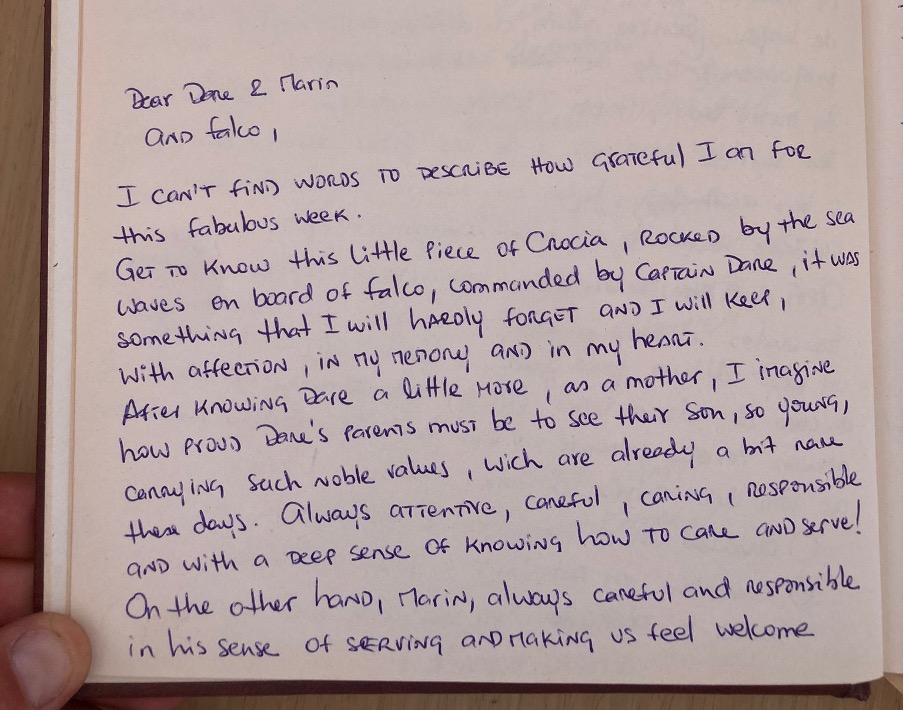 Dear Dane & Marin
AND falco,
I CAN'T fiND WORDS TO DESCRIBE HOW GRATEful I am FOR
this fabulous week.
GET TO KNOW this little Piece of Crocia, ROCKED by the sea
waves on board of falco, commanded by CAPTAIN Dane, it was
something that I will hARDly foRGET AND I will KEEP,
with affection, in my memory AND in my heart.
After KNOWING Dane a little MORE, as a mother, I imagine
how PROUD Dane's PARENTS must be to see their Son, so young,
carrying such Noble values, wich are already a bit rare
these days. Always ATTENTIVE, careful, caring, RESPONSible
AND with a DEEP sense of KNOWING how TO CARE AND serve!
On the other hAND, MARIN, always careful and responsible
in his sense of SERVING AND MAKING us feel welcome